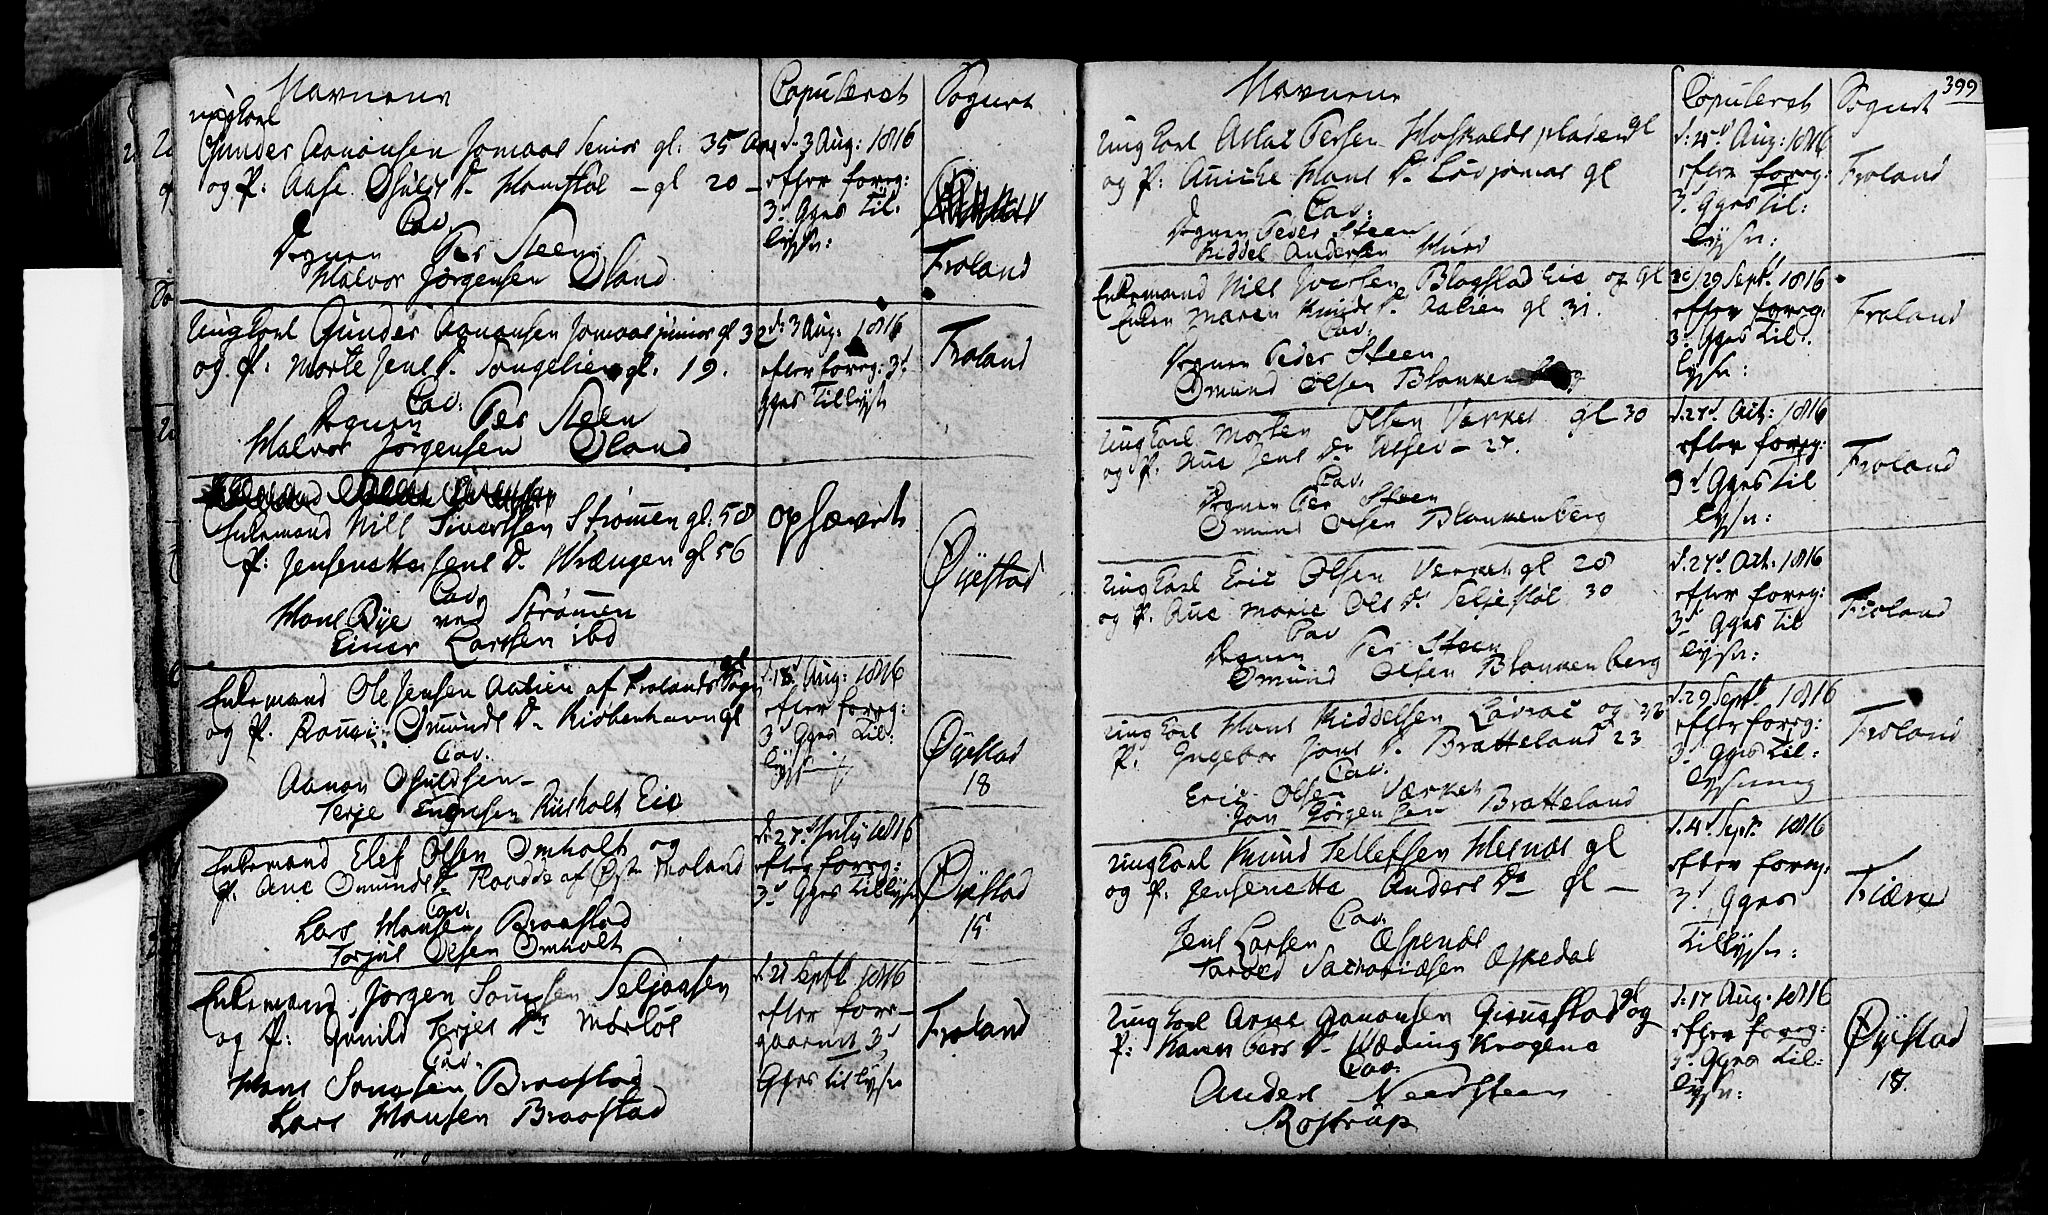 Navnene
Copuleret
Sognet
ungkarl
Gunder Aanonsen Jomaas Senior gl. 35 Aar
og P. Aase Osuls D. Hamstøl – gl 20 –
Cav.
Degnen Per Steen
Halvor Jørgensen Øland
d. 3 Aug: 1816
efter foreg:
3d Ggns Til:
lysn:
Froland
Ungkarl Gunder Aanonsen Jomaas junior gl 32
og P. Marte Jens D. Songelien gl. 19.
Cav.
Degnen Per Steen
Halvor Jørgensen Øland
d. 3 Aug: 1816
efter foreg: 3d
Ggns Tillysn
Froland
Enkemand Nils Sivertsen Strømen gl: 58
P. Jensenetta Jens D. Wrængen gl 56
Cav.
Hans Bye ved Strømen
Einer Larsen ibd
ophævet
Øyestad
Enkemand Ole Jensen Aalien af Frolands Sogn gl
og P. Omunds D. Kiøbenhavn gl
Cav.
Aanon Osuldsen –
Terje Rusholt Eie
d. 18 Aug: 1816
efter foreg:
3d Ggns Til:
lysning
Øyestad
18
Enkemand Elef Olsen Omholt og
P. Ane Omunds D. af Øst Moland
Cav.
Lars Hansen Braastad
Torjus Olsen Omholt
d. 27d July 1816
efter foreg:
3d Ggns Tillysn
Øyestad
15
Enkemand Jørgen Seljaasen
og P: Gunild Terjes D. Mørløs
Cav.
Hans Braastad
Lars Hansen Braastad
d. 21 Septbr 1816
efter fore–
gaaende 3d
Ggns tillysn
Froland
399
Navnene
Copuleret
Sognet
Ungkarl Aslak Persen gl
og P. Aniche Hans D. Løvjomas gl
Cav:
Degnen Peder Steen
Kiddel Andersen
d: 4d Aug: 1816
efter foreg:
3d Ggns Til:
lysn:
Froland
Enkemand Nils Iversen Blagstad Eie og gl
Enken Maren Knuds D. Aalien gl 31.
Cav.
Degnen Peder Steen
Omund Olsen Blankenberg
29 Septr. 1816
efter foreg:
3d Ggns Til:
lysn:
Froland
Ungkarl Morten Olsen Værket gl 30
og P. Ane Jens D.
Cav.
Degnen Per Steen
Omund Olsen Blankenberg
d. 27d Oct: 1816
efter foreg:
3d Ggns Til
lysn:
Froland
Ungkarl Eric Olsen Værket gl 28
og P. Ane Marie Ols D. Seljestøl 30
Cav
Degnen Per Steen
Omund Olsen Blankenberg
d. 27d Oct. 1816
efter foreg:
3d Ggns Til
lysn:
Froland
Ungkarl Hans Kiddelsen Løvrac og
P. Ingebor Jons D. Bratteland 23
Cav.
Eric Olsen Værket
Jon Jørgensen Bratteland
d. 29 Septbr 1816
efter foreg:
3d Ggns Til:
lysning
Froland
Ungkarl Knud Tellefsen Hesnæs gl
og P. Jensenetta Anders Dr gl –
Cav.
Jens Larsen Æspenæs
Tarald Sachariasen Æskedal
d. 4d Septr 1816
efter foreg:
3d Ggns
Tillysn:
Fiære
Ungkarl Arne Aanonsen gl og
P: Karen Pers D. Wæding Krogene
Cav.
Anders Nedsteen
Rostrup
d: 17 Aug: 1816
efter foreg:
3d Ggns Til:
lysn:
Øyestad
18.